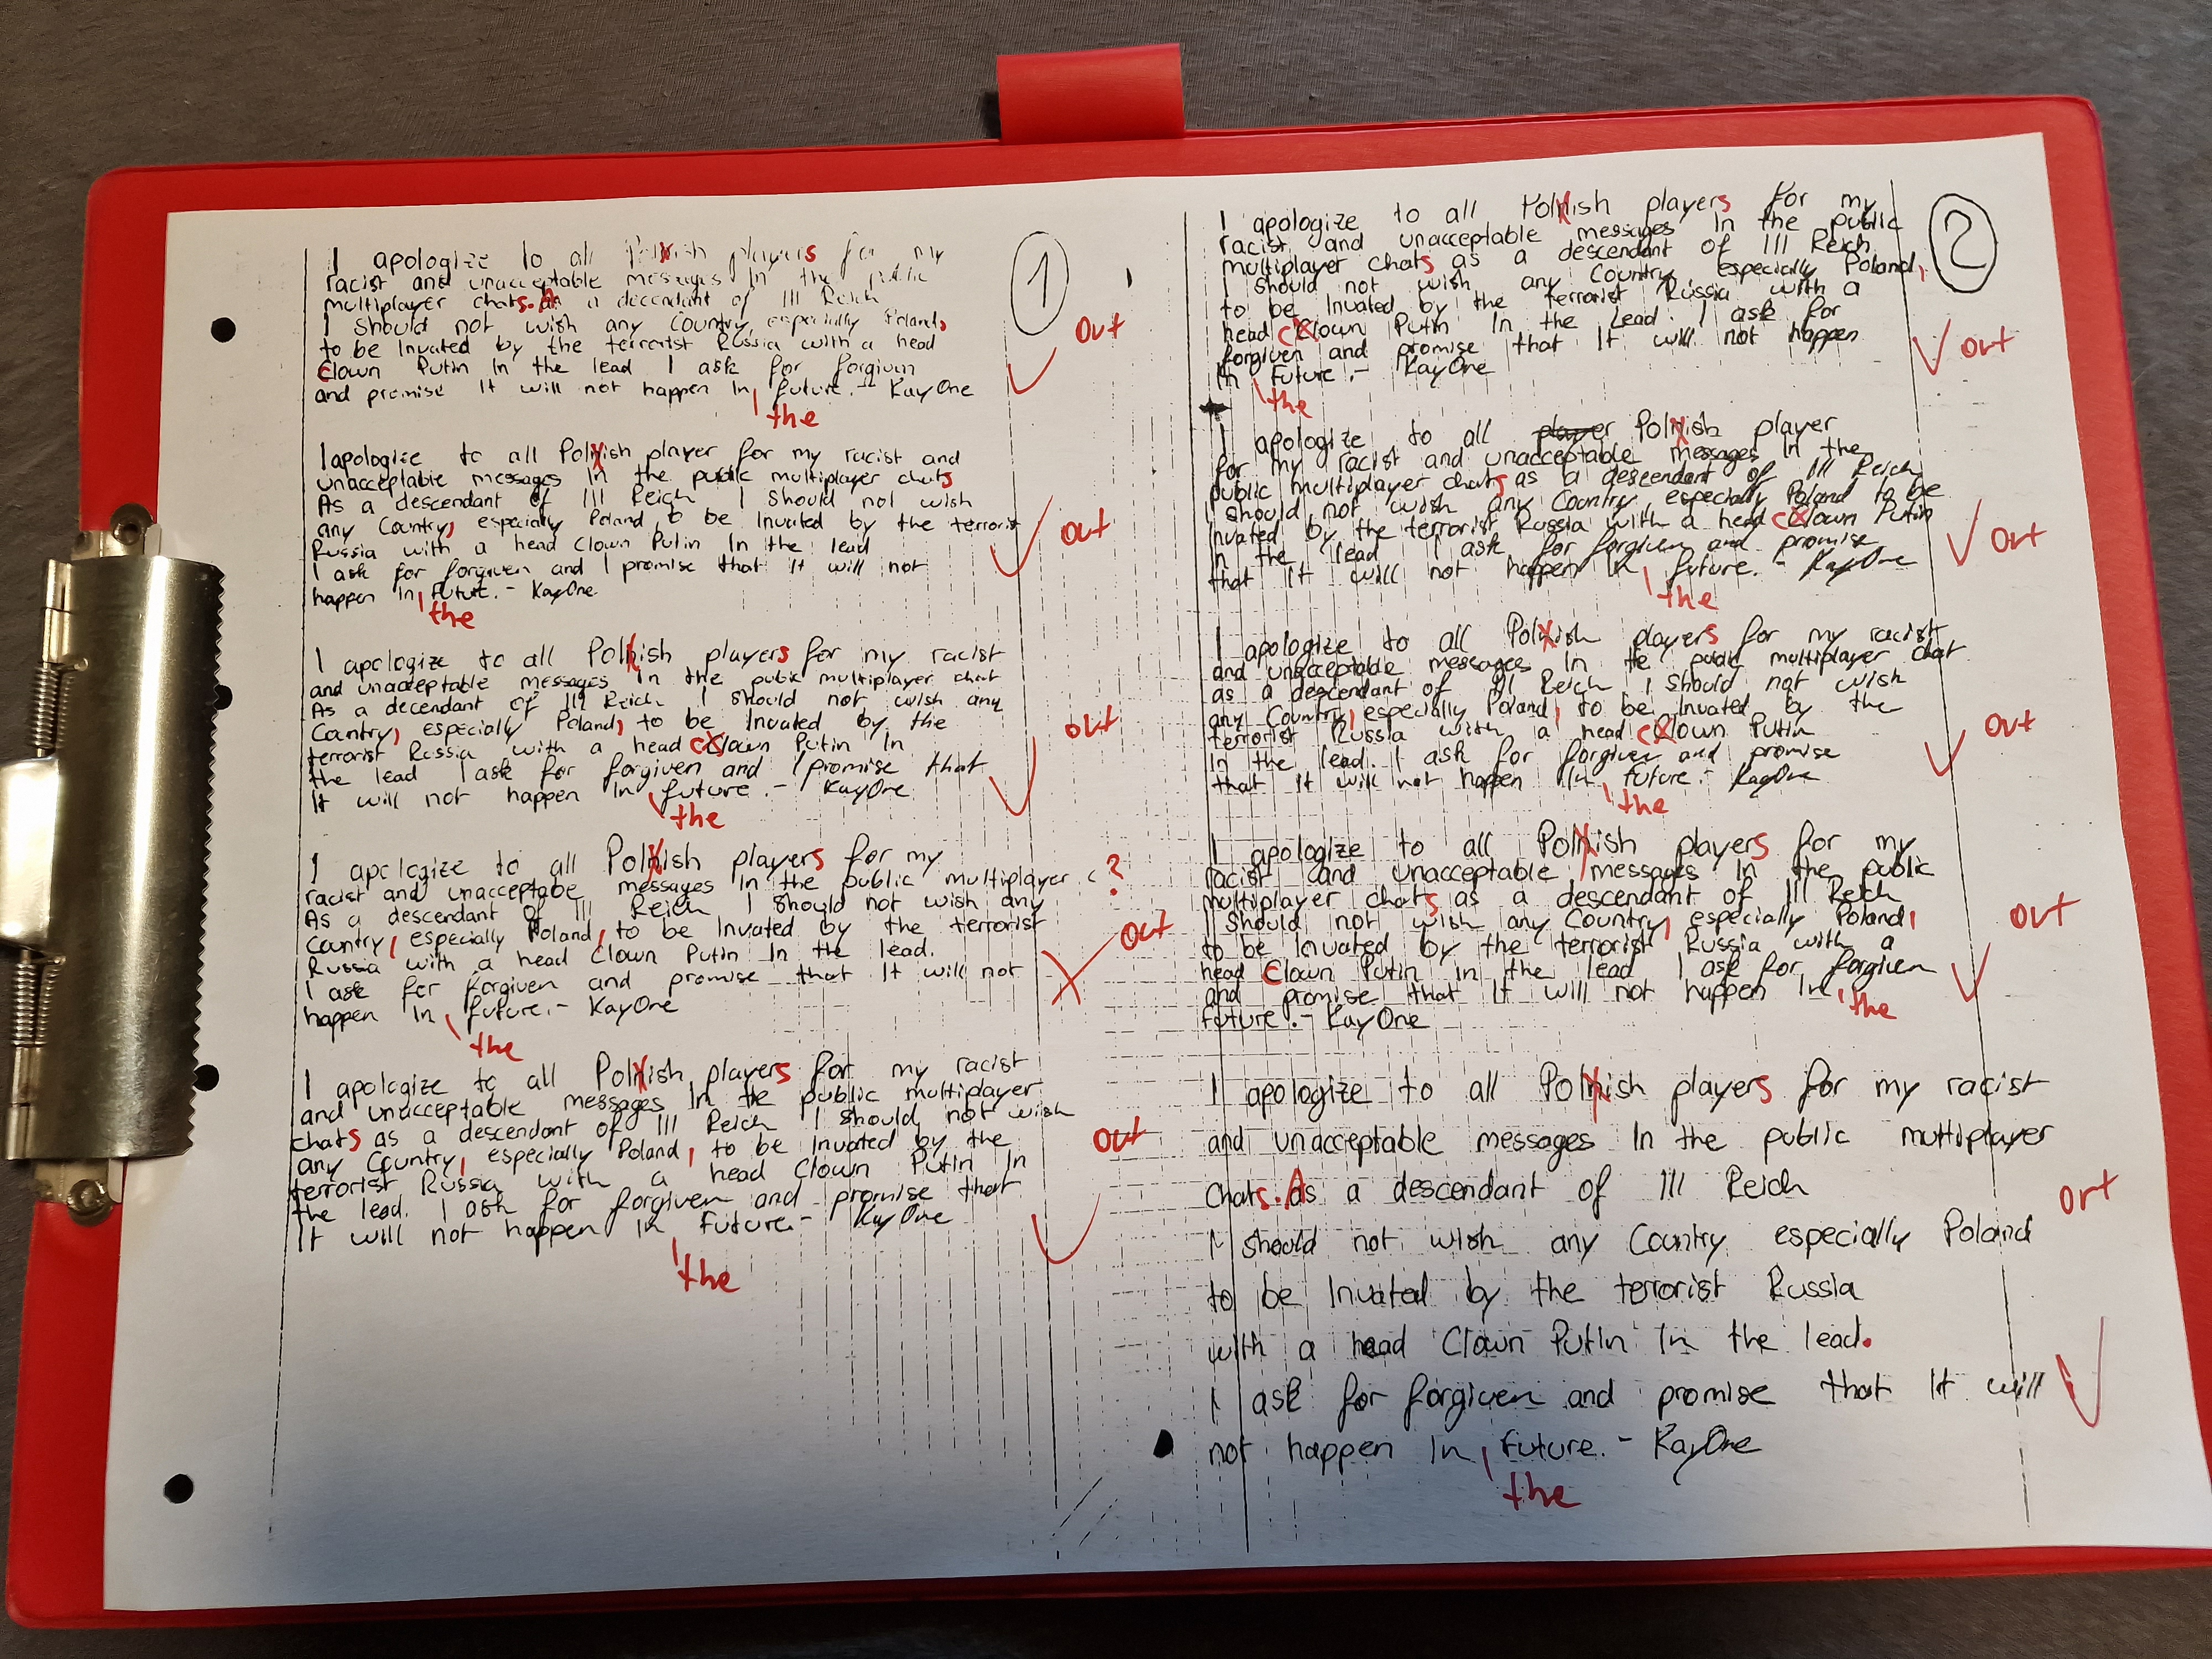 1
I apologize to all Polnish players for my
racist and unacceptable messages In the public
multiplayer chats. As a decendant of III Reich
I should not wish any Country, especially Poland,
to be Invated by the terrorist Russia with a head
Clown Putin In the lead I ask for forgiven
and promise It will not happen In future. - KayOne
the
out
I apologize to all Polnish player for my racist and
unacceptable messages In the public multiplayer chats
As a descendant of III Reich I should not wish
any Country, especially Poland to be Invated by the terrorist
Russia with a head Clown Putin In the lead
I ask for forgiven and I promise that It will not
happen In future. - KayOne
the
out
I apologize to all Polnish players for my racist
and unacceptable messages In the public multiplayer chat
As a decendant of III Reich I should not wish any
Country, especially Poland, to be Invated by the
terrorist Russia with a head cClown Putin In
the lead I ask for forgiven and I promise that
It will not happen In future. - KayOne
the
out
I apologize to all Polnish players for my
racist and unacceptabe messages In the public multiplayer c ?
As a descendant of III Reich I should not wish any
Country, especially Poland, to be Invated by the terrorist
Russia with a head Clown Putin In the lead.
I ask for forgiven and promise that It will not
happen In future. - KayOne
the
out
I apologize to all Polnish players for my racist
and unacceptable messages In the public multiplayer
chats as a descendant of III Reich I should not wish
any Country, especially Poland, to be Invated by the
terrorist Russia with a head Clown Putin In
the lead. I ask for forgiven and promise that
It will not happen In future. - KayOne
the
out
2
I apologize to all Polnish players for my
racist and unacceptable messages In the public
multiplayer chats as a descendant of III Reich
I should not wish any Country especially Poland,
to be Invated by the terrorist Russia with a
head cClown Putin In the Lead. I ask for
forgiven and promise that It will not happen
In future. - KayOne
the
out
I apologize to all player Polnish player
for my racist and unacceptable messages In the
public multiplayer chats as a descendant of III Reich
I should not wish any Country especially Poland to be
Invated by the terrorist Russia with a head cClown Putin
In the lead I ask for forgiven and promise
that It will not happen In future. - KayOne
the
out
I apologize to all Polnish players for my racist
and unacceptable messages In the public multiplayer chat
as a descendant of III Reich I should not wish
any Country, especially Poland, to be Invated by the
terrorist Russia with a head cClown Putin
In the lead. I ask for forgiven and promise
that It will not happen In future. - KayOne
the
out
I apologize to all Polnish players for my
racist and unacceptable messages In the public
multiplayer chats as a descendant of III Reich
I should not wish any Country, especially Poland,
to be Invated by the terrorist Russia with a
head Clown Putin In the lead I ask for forgiven
and promise that It will not happen In the
future. - KayOne
out
I apologize to all Polnish players for my racist
and unacceptable messages In the public multiplayer
chats. As a descendant of III Reich
I should not wish any Country especially Poland
to be Invated by the terrorist Russia
with a head Clown Putin In the lead.
I ask for forgiven and promise that It will
not happen In future. - KayOne
the
out